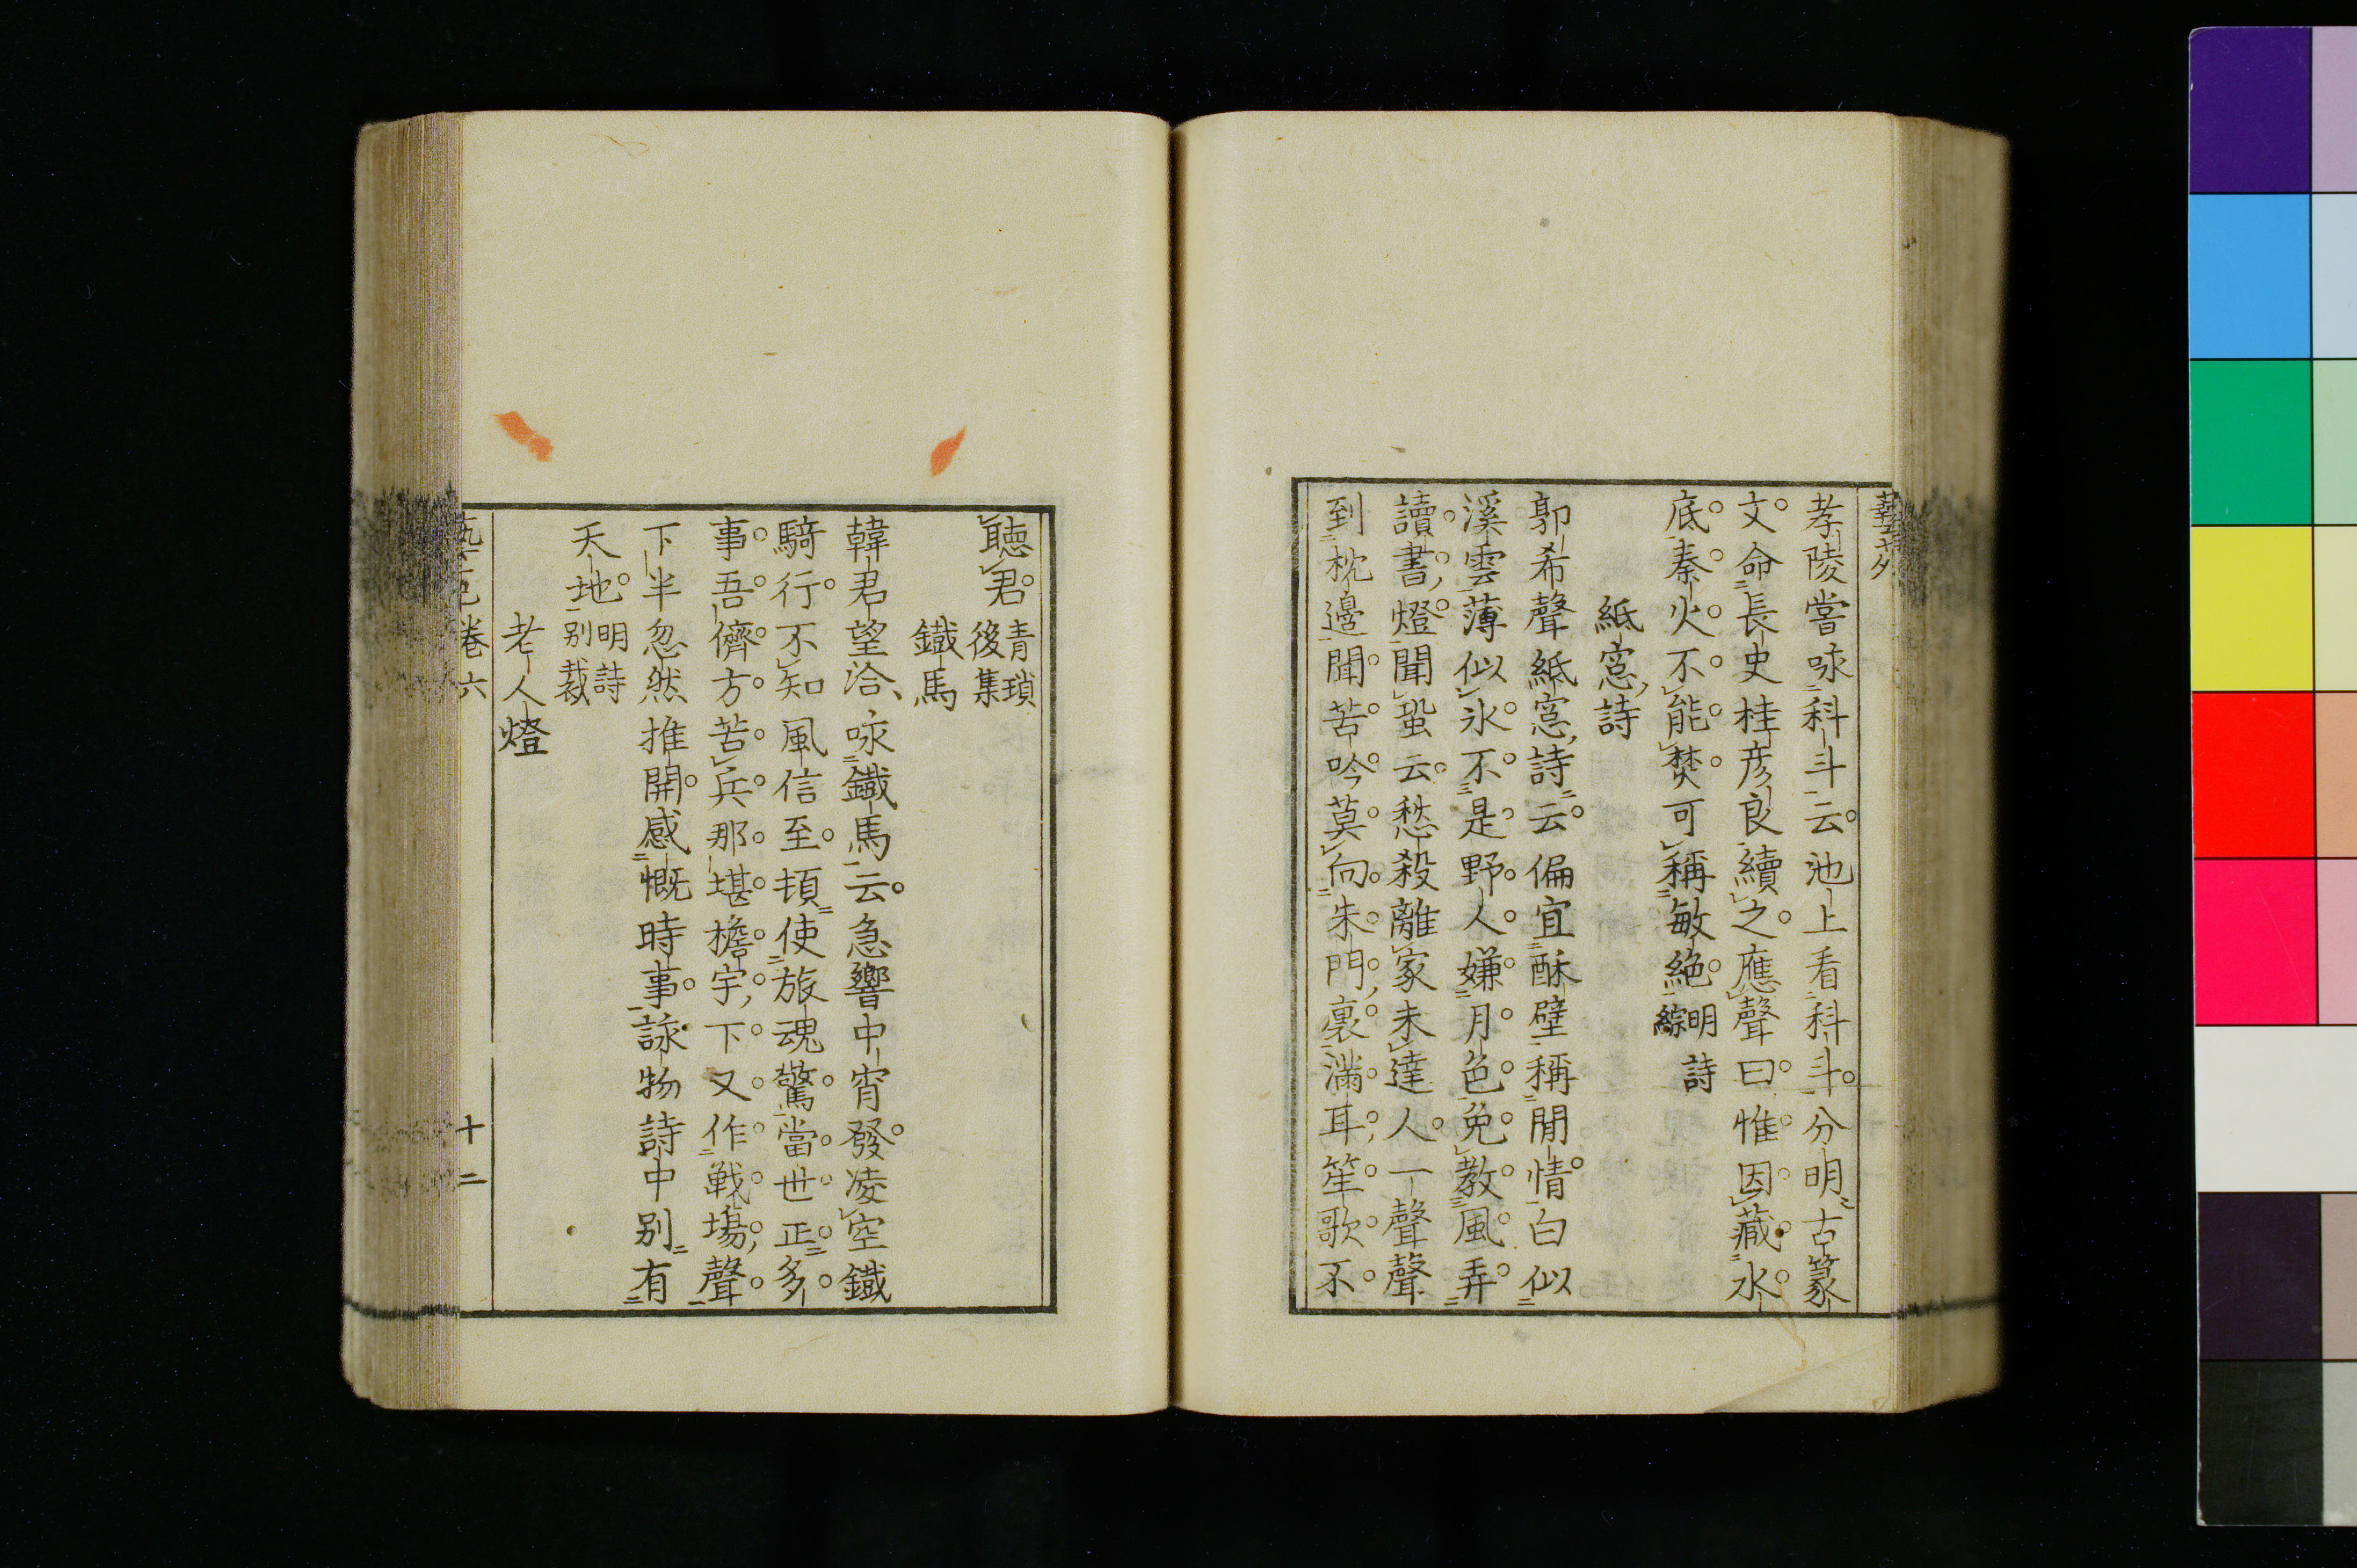 孝陵嘗咏科斗云池上看科斗分明古篆
文命長史桂彦良續之應聲曰惟因藏水
底秦火不能焚可稱敏絶明詩綜
紙窓詩
郭希聲紙窓詩云偏宜酥壁稱閒情白似
溪雲薄似氷不是野人嫌月色免教風弄
讀書燈聞蛩云愁殺離家未達人一聲聲
到枕邊聞苦吟莫向朱門裏滿耳笙歌不
聽君青瑣後集
鐵馬
韓君望洽咏鐵馬云急響中宵發凌空鐵
騎行不知風信至頓使旅魂驚當世正多
事吾儕方苦兵那堪檐宇下又作戦場聲
下半忽然推開感慨時事詠物詩中別有
天地明詩別裁
老人燈
卷六
十二